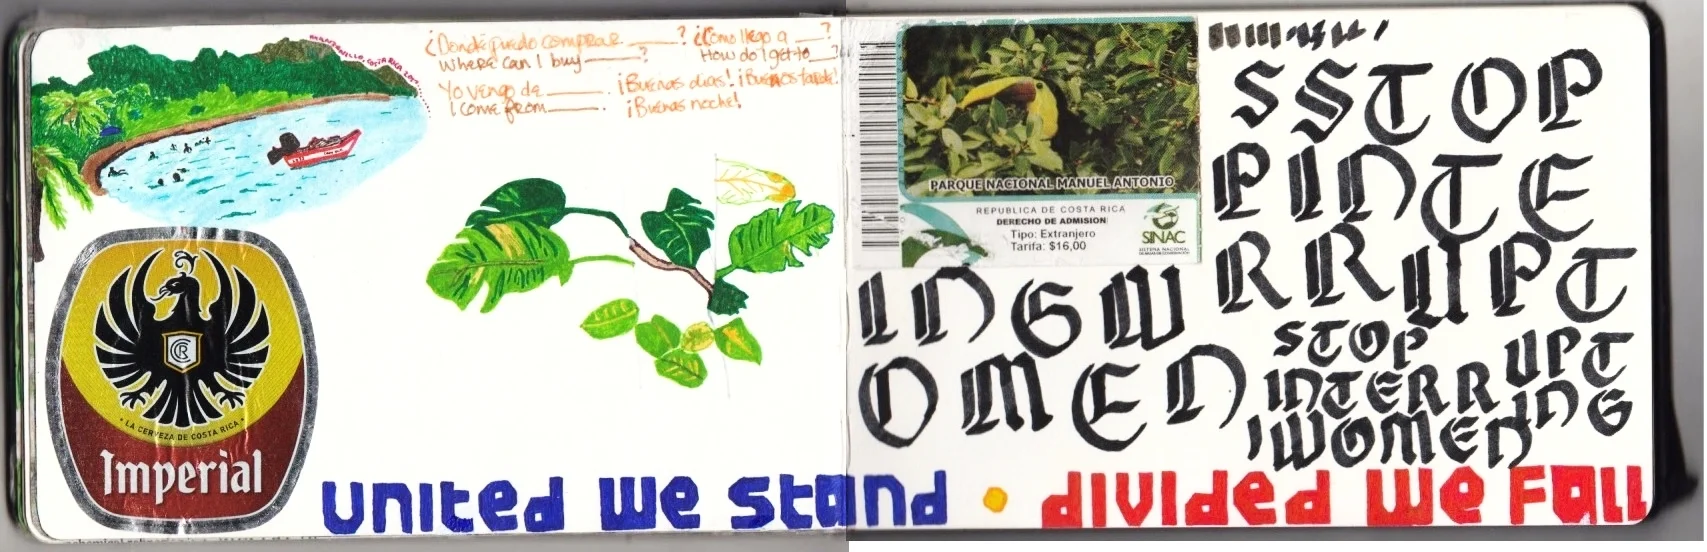 MANZANILLO, COSTA RICA
¿Donde puedo comprar ______?
Where can I buy ______?
¿Cómo llego a ___?
How do I get to ___?
Yo vengo de ______.
I come from ______.
¡Buenos dias! ¡Buenas tarde!
¡Buenas noche!
CCR
LA CERVEZA DE COSTA RICA
Imperial
PARQUE NACIONAL MANUEL ANTONIO
REPUBLICA DE COSTA RICA
DERECHO DE ADMISION
Tipo: Extranjero
Tarifa: $16,00
SINAC
SSTOP
PINTE
RRUPT
INGW
OMEN
STOP
INTERR
UPT
ING
WOMEN
united we stand • divided we fall